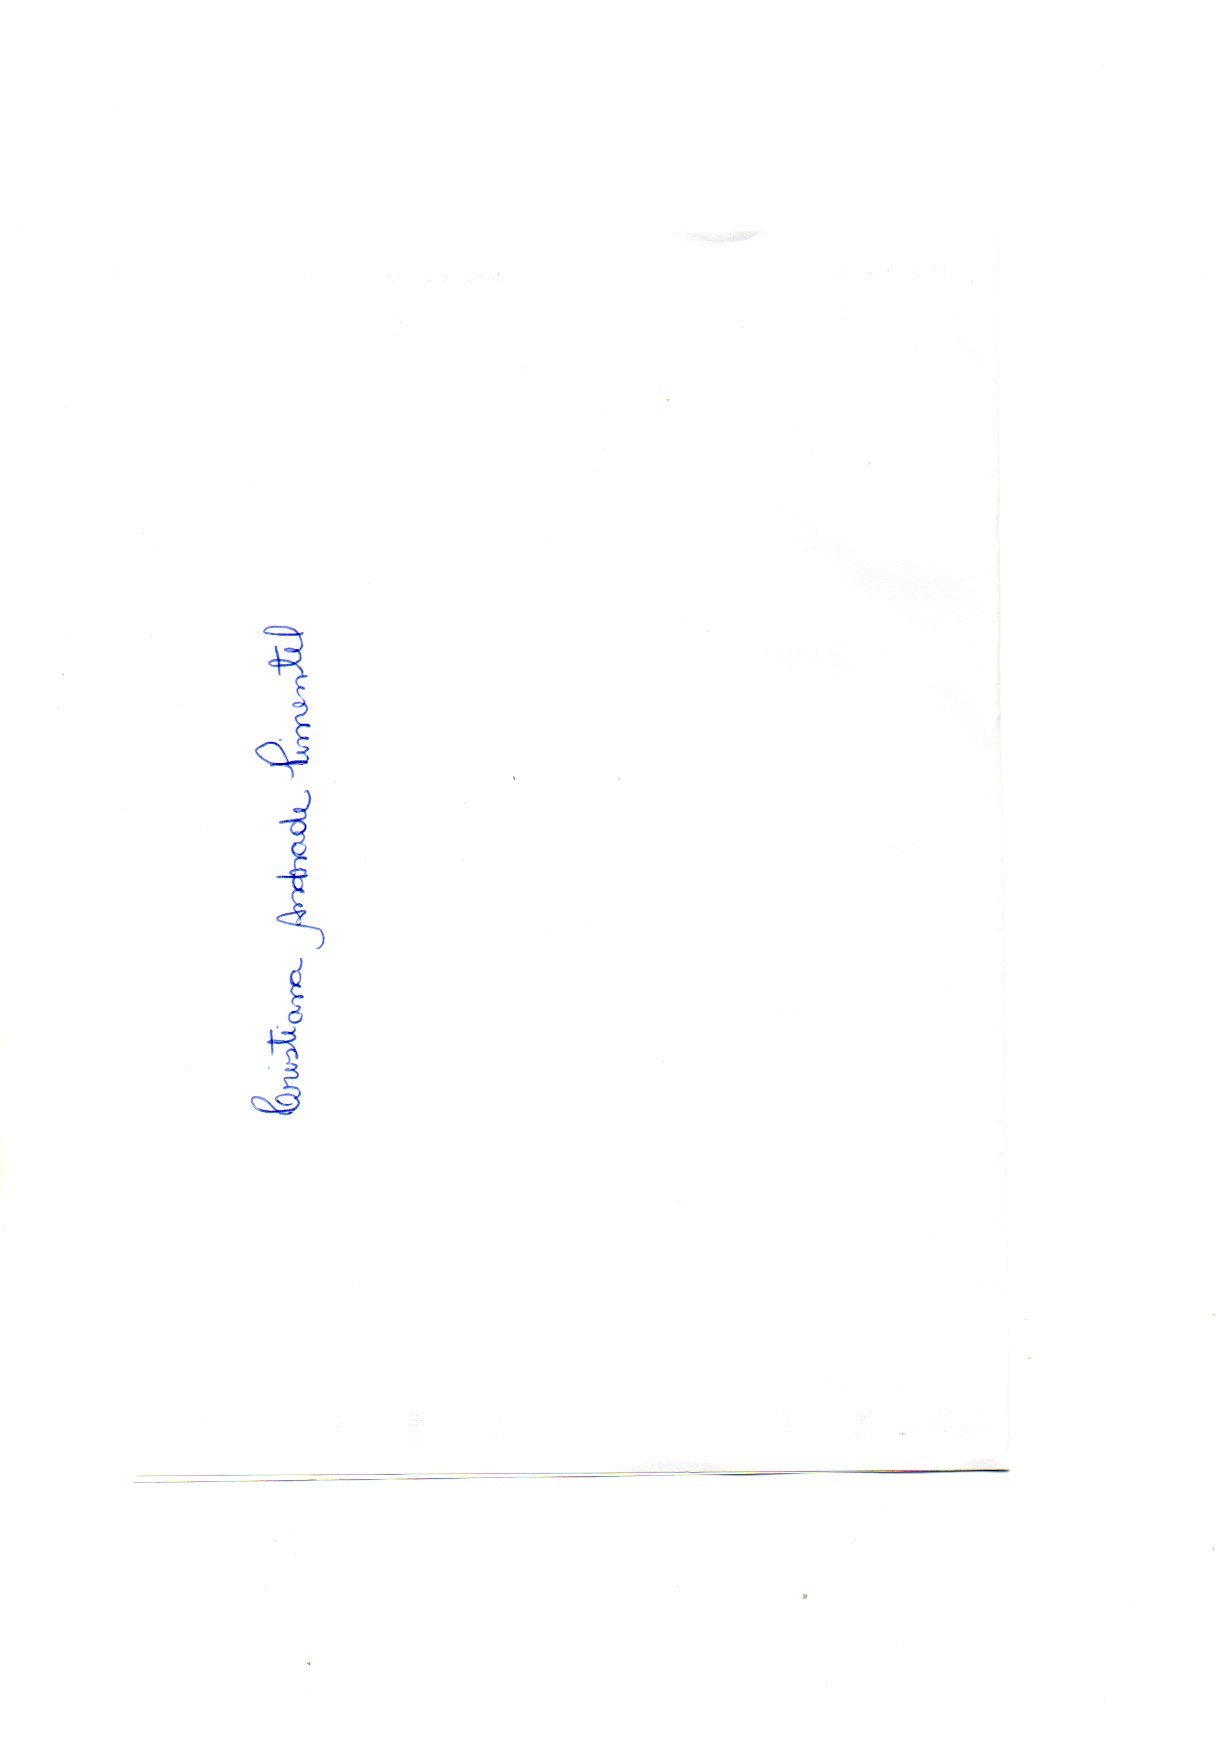 Cristiana Andrade Pimentel